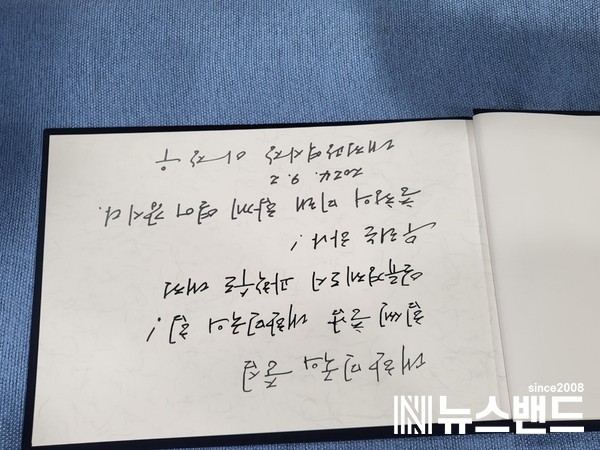 since2008
대한민국의 중심
힘쎈 충남 대한민국의 힘!
일류경제도시 과학수도 대전
우리는 하나!
충청의 미래 함께 열어 갑시다.
2024. 9. 2
대전광역시장 이 장 우